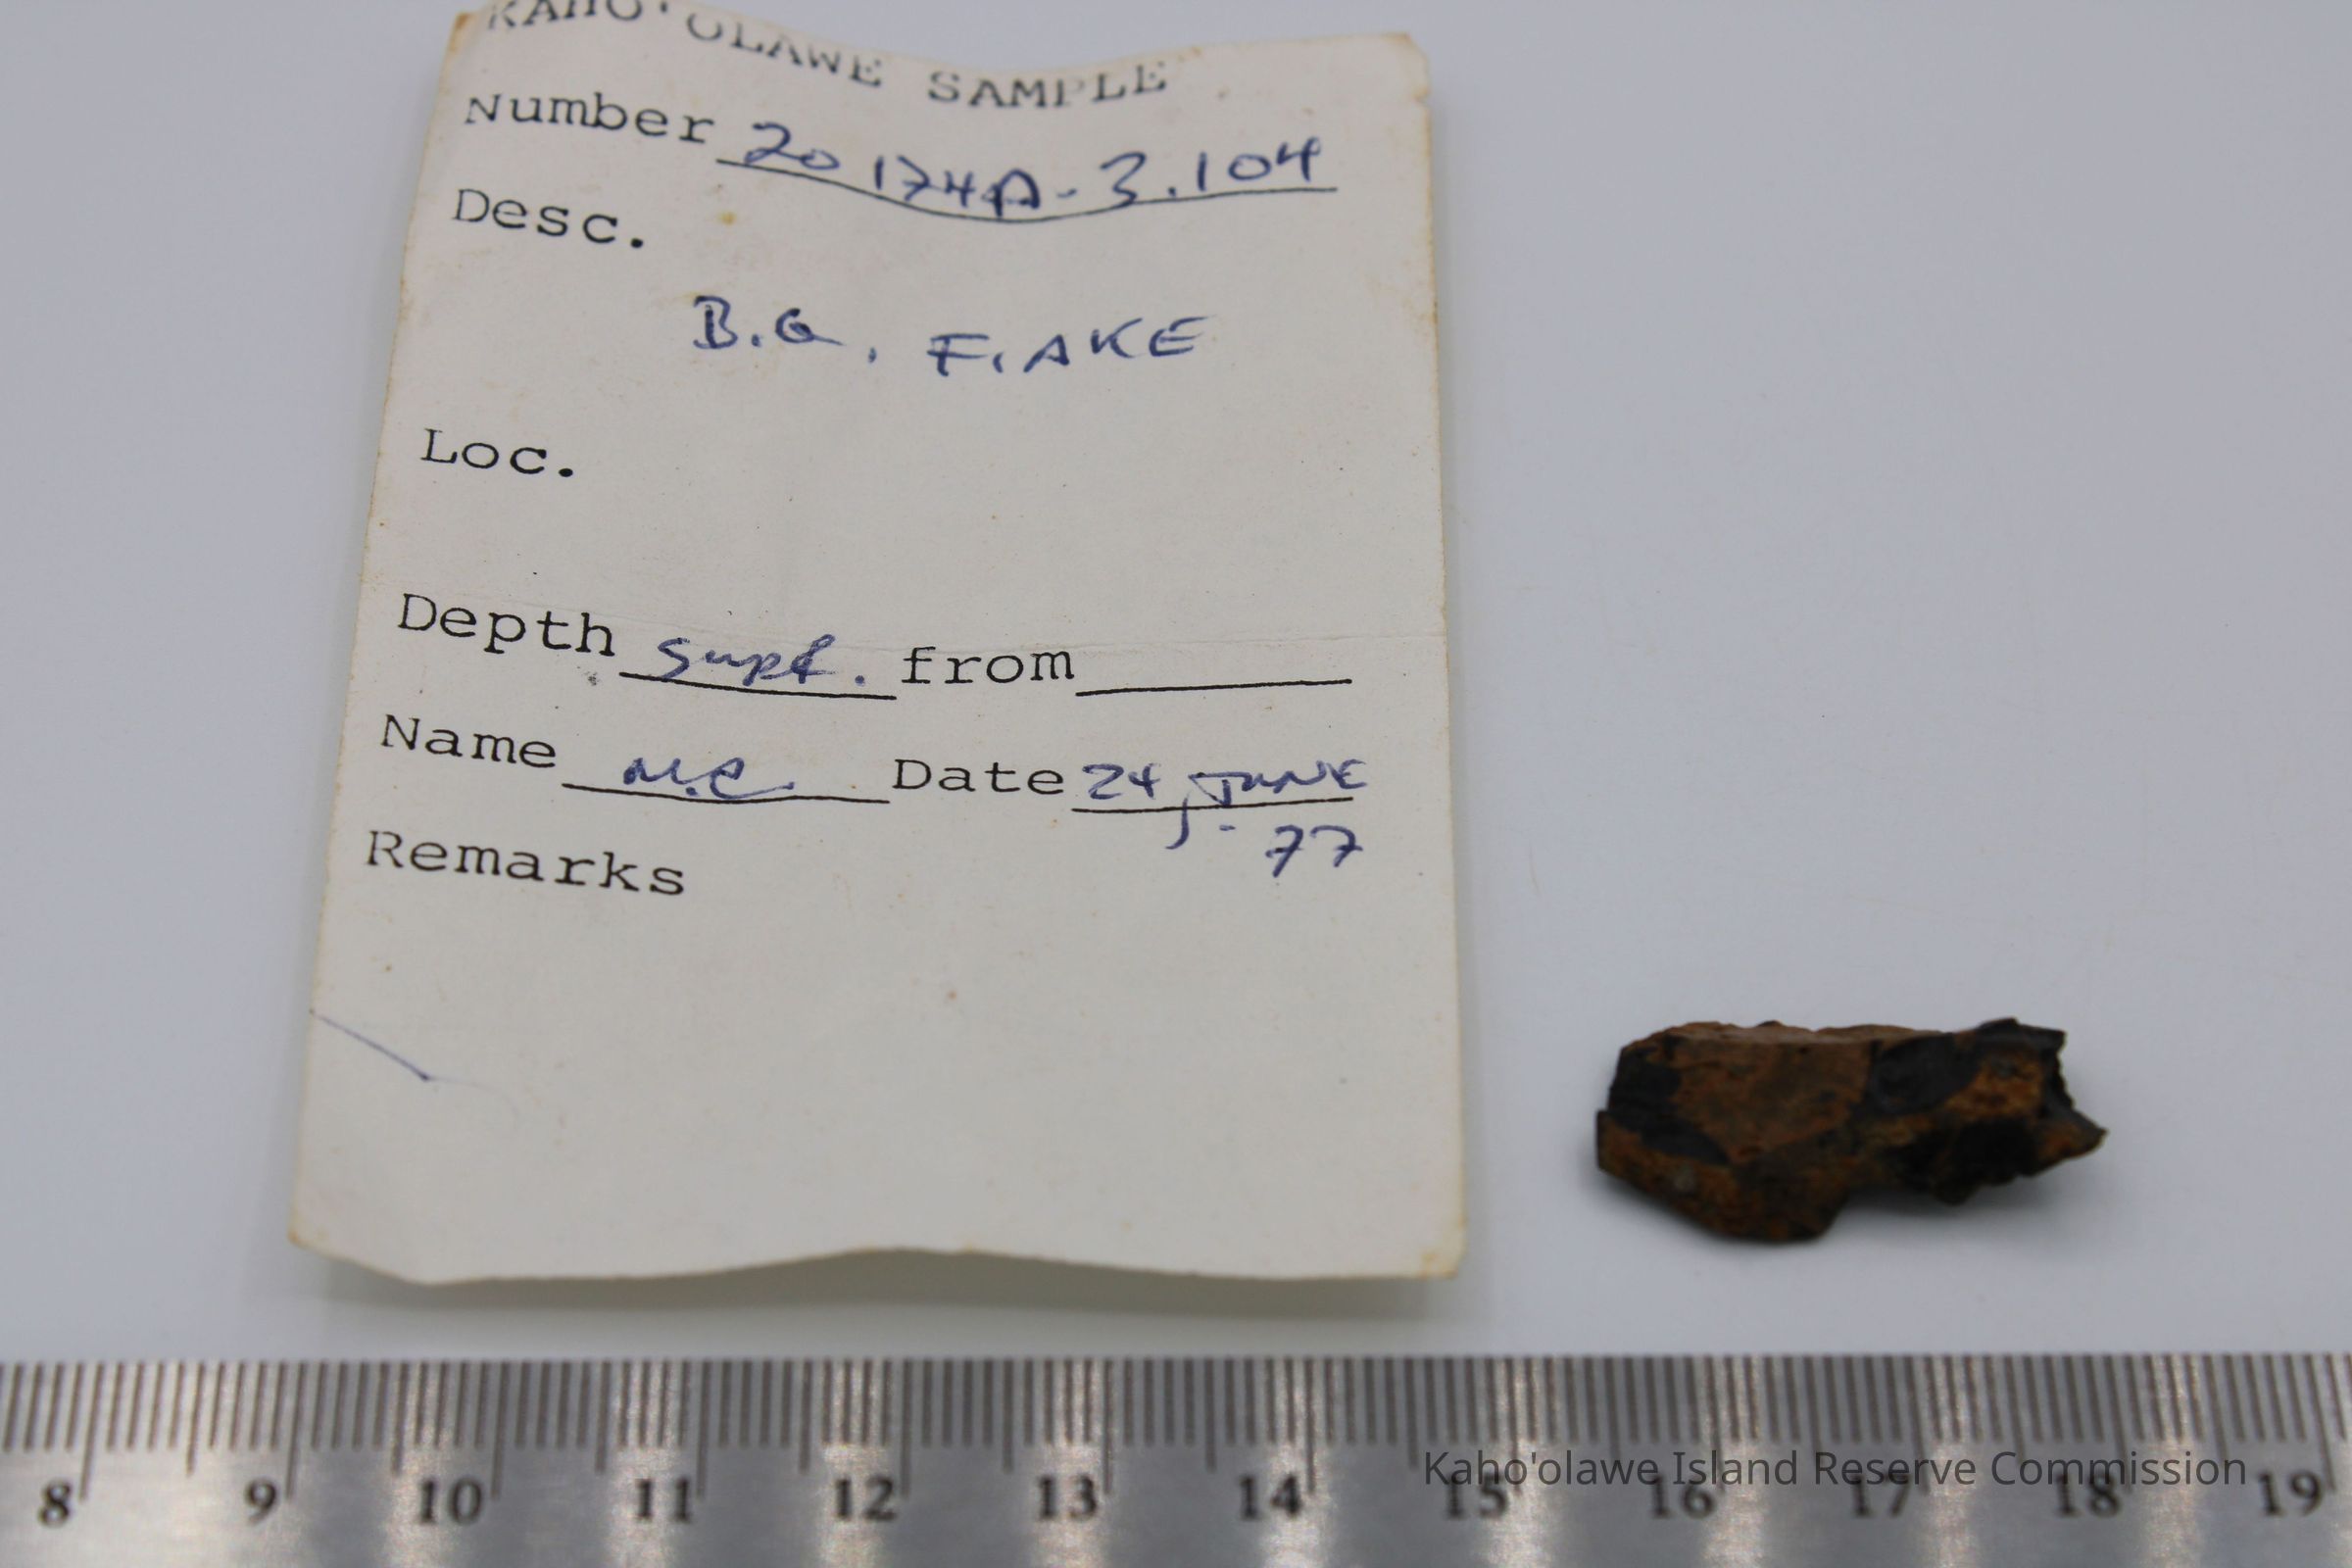 KAHO'OLAWE SAMPLE
Number 20 174A-3.104
Desc.
B.G. FLAKE
Loc.
Depth Surf. from
Name M.C. Date 24 JUNE
77
Remarks
Kaho'olawe Island Reserve Commission
8 9 10 11 12 13 14 15 16 17 18 19